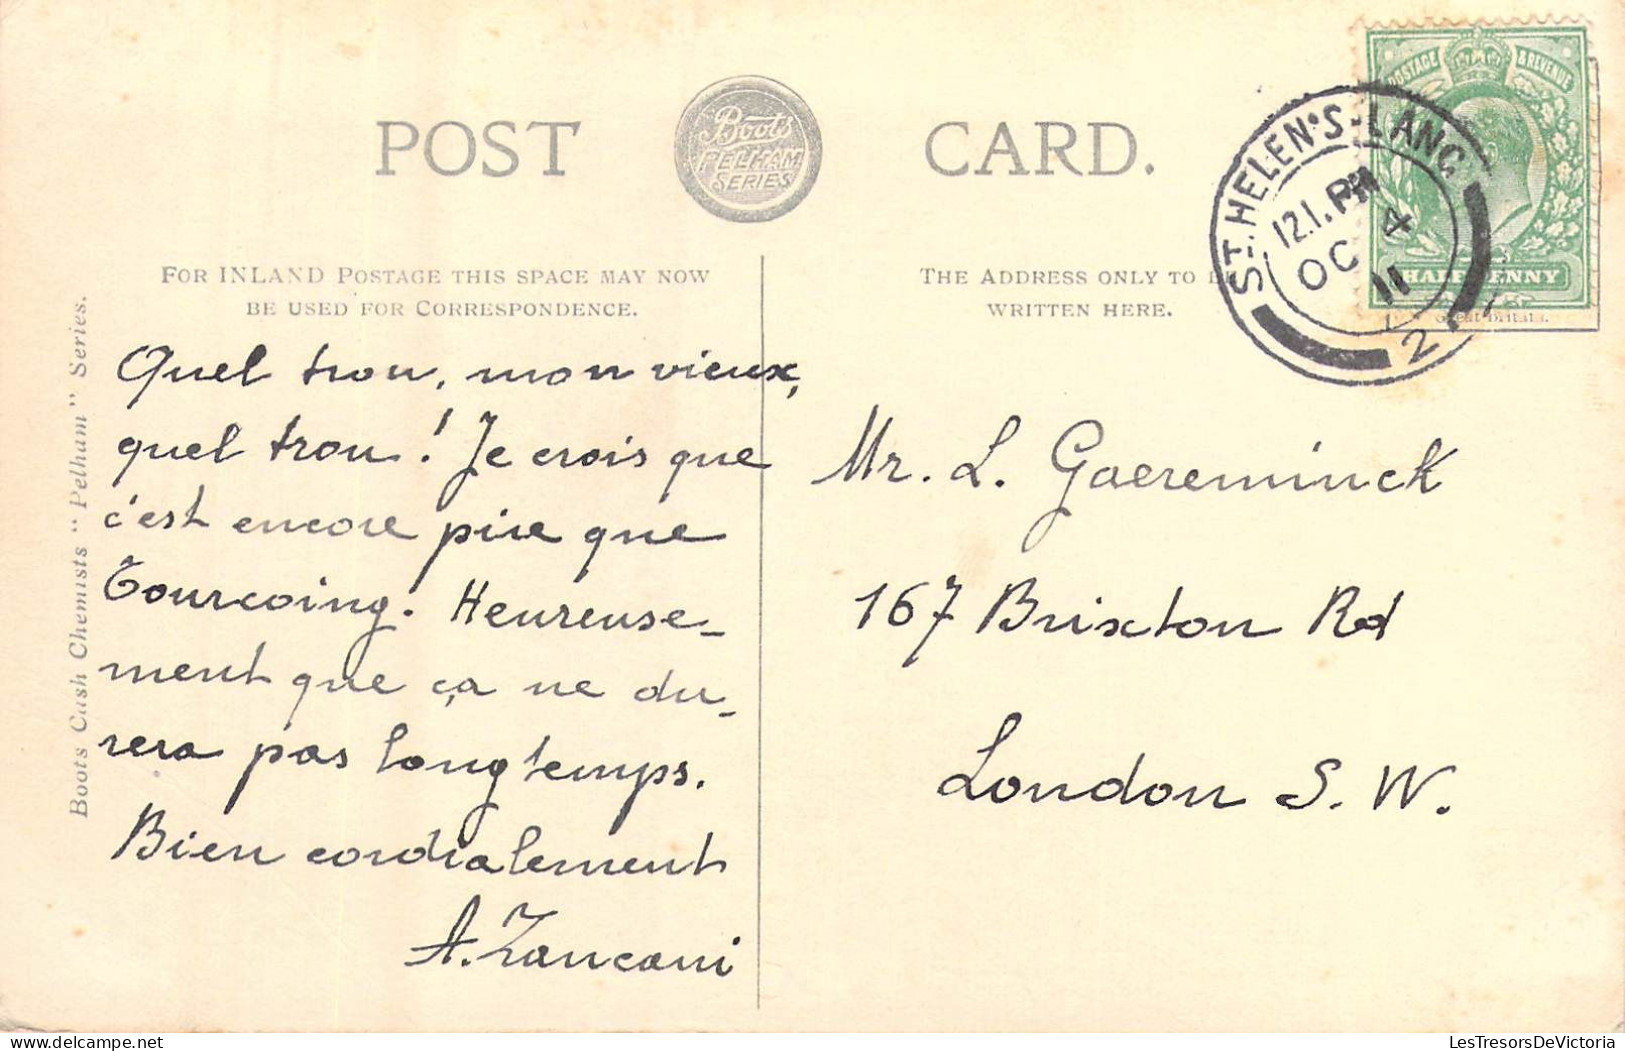 POST CARD.
Boots
PELHAM
SERIES
FOR INLAND POSTAGE THIS SPACE MAY NOW
BE USED FOR CORRESPONDENCE.
THE ADDRESS ONLY TO
WRITTEN HERE.
POSTAGE & REVENUE
HALFPENNY
ST. HELEN'S-LANC
12.1. PM
OC 4
11
2
Boots Cash Chemists "Pelham" Series.
Quel trou, mon vieux,
quel trou! Je crois que
c'est encore pire que
Tourcoing. Heureuse-
ment que ça ne du-
rera pas longtemps.
Bien cordialement
A. Zancani
Mr. L. Gaereminck
167 Brixton Rd
London S. W.
www.LesTresorsDeVictoria.com